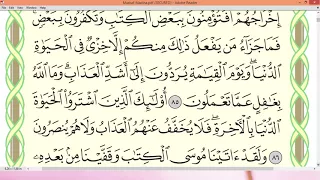 إِخْرَاجُهُمْ أَفَتُؤْمِنُونَ بِبَعْضِ الْكِتَٰبِ وَتَكْفُرُونَ بِبَعْضٍ
فَمَا جَزَآءُ مَن يَفْعَلُ ذَٰلِكَ مِنكُمْ إِلَّا خِزْىٌ فِى الْحَيَوٰةِ
الدُّنْيَا وَيَوْمَ الْقِيَٰمَةِ يُرَدُّونَ إِلَىٰٓ أَشَدِّ الْعَذَابِ وَمَا اللَّهُ
بِغَٰفِلٍ عَمَّا تَعْمَلُونَ ٨٥ أُو۟لَٰٓئِكَ الَّذِينَ اشْتَرَوُا الْحَيَوٰةَ
الدُّنْيَا بِالْءَاخِرَةِ فَلَا يُخَفَّفُ عَنْهُمُ الْعَذَابُ وَلَا هُمْ يُنصَرُونَ
٨٦ وَلَقَدْ ءَاتَيْنَا مُوسَى الْكِتَٰبَ وَقَفَّيْنَا مِنۢ بَعْدِهِۦ